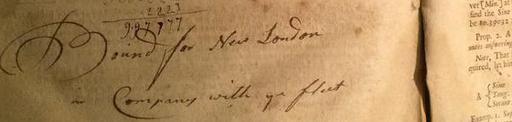 2223
997777
Bound for New London
in Company with ye fleet
ver [Min.] at
find the Sine
be 10.19032
Prop. 2. A
Note, That
quired, let his
A { Sine
Tang.
Secant
Examp. 1.